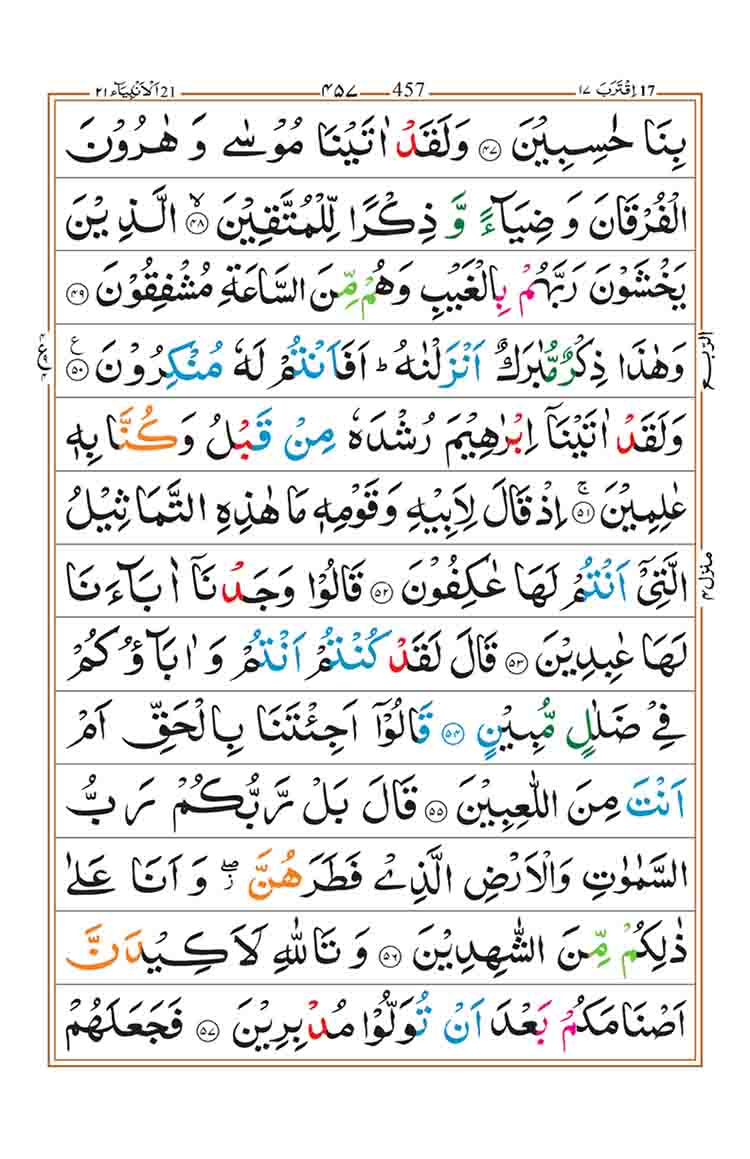 اِقْتَرَبَ ١٧ 17 457 ٤٥٧ اَلْاَنْۢبِيَآء ٢١ 21
بِنَا حٰسِبِيْنَ ﴿۴۷﴾ وَلَقَدْ اٰتَيْنَا مُوْسٰى وَ هٰرُوْنَ
الْفُرْقَانَ وَ ضِيَآءً وَّ ذِكْرًا لِّلْمُتَّقِيْنَ ﴿ۙ۴۸﴾ الَّذِيْنَ
يَخْشَوْنَ رَبَّهُمْ بِالْغَيْبِ وَهُمْ مِّنَ السَّاعَةِ مُشْفِقُوْنَ ﴿۴۹﴾
وَهٰذَا ذِكْرٌ مُّبٰرَكٌ اَنْزَلْنٰهُ ؕ اَفَاَنْتُمْ لَهٗ مُنْكِرُوْنَ ﴿۵۰﴾ ع
وَلَقَدْ اٰتَيْنَاۤ اِبْرٰهِيْمَ رُشْدَهٗ مِنْ قَبْلُ وَكُنَّا بِهٖ
عٰلِمِيْنَ ﴿ۚ۵۱﴾ اِذْ قَالَ لِاَبِيْهِ وَقَوْمِهٖ مَا هٰذِهِ التَّمَاثِيْلُ
الَّتِيْۤ اَنْتُمْ لَهَا عٰكِفُوْنَ ﴿۵۲﴾ قَالُوْا وَجَدْنَاۤ اٰبَآءَنَا
لَهَا عٰبِدِيْنَ ﴿۵۳﴾ قَالَ لَقَدْ كُنْتُمْ اَنْتُمْ وَ اٰبَآؤُكُمْ
فِيْ ضَلٰلٍ مُّبِيْنٍ ﴿۵۴﴾ قَالُوْۤا اَجِئْتَنَا بِالْحَقِّ اَمْ
اَنْتَ مِنَ اللّٰعِبِيْنَ ﴿۵۵﴾ قَالَ بَلْ رَّبُّكُمْ رَبُّ
السَّمٰوٰتِ وَالْاَرْضِ الَّذِيْ فَطَرَهُنَّ ۖ ز وَ اَنَا عَلٰى
ذٰلِكُمْ مِّنَ الشّٰهِدِيْنَ ﴿۵۶﴾ وَ تَاللّٰهِ لَاَكِيْدَنَّ
اَصْنَامَكُمْ بَعْدَ اَنْ تُوَلُّوْا مُدْبِرِيْنَ ﴿۵۷﴾ فَجَعَلَهُمْ
الرّبع
منزل ۴